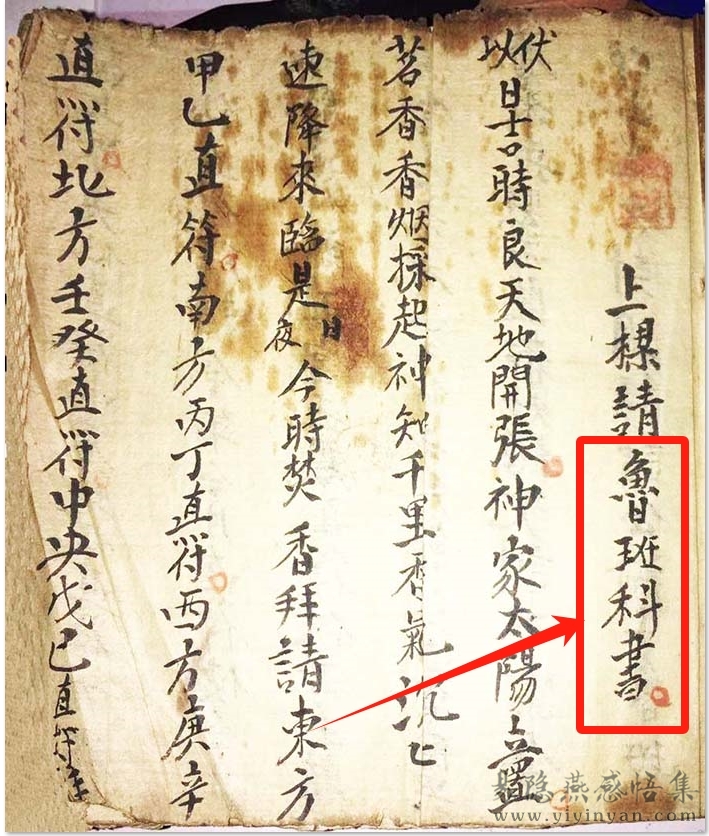 上樑請魯班科書
伏以日吉時良天地開張神家太陽
茗香香烟採起神知千里香氣沉亡
速降來臨是日夜今時焚香拜請東方
甲乙直符南方丙丁直符西方庚辛
直符北方壬癸直符中央戊己直符
易隐燕感悟集
www.yiyinyan.com